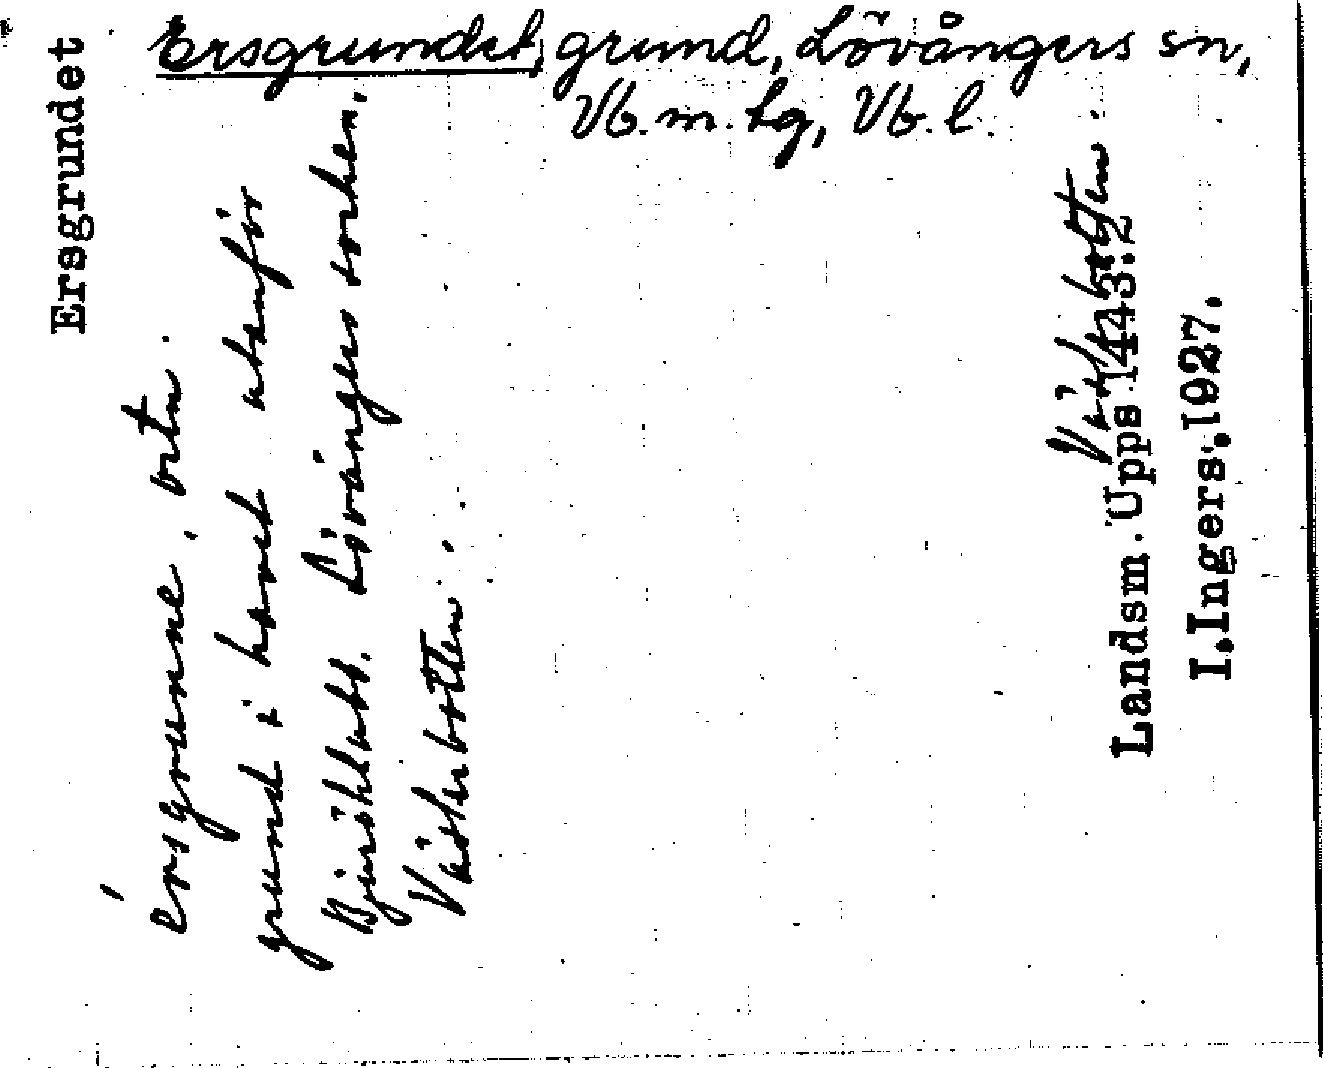 Ersgrundet, grund, Lövångers sn,
Vb. m. tg, Vb. l.
Ersgrundet
érsgrunne, ortn.
grund i havet utanför
Bjuröklubb. Lövångers socken.
Västerbotten.
Västerbotten.
Landsm. Upps 1443:2
I. Ingers. 1927.